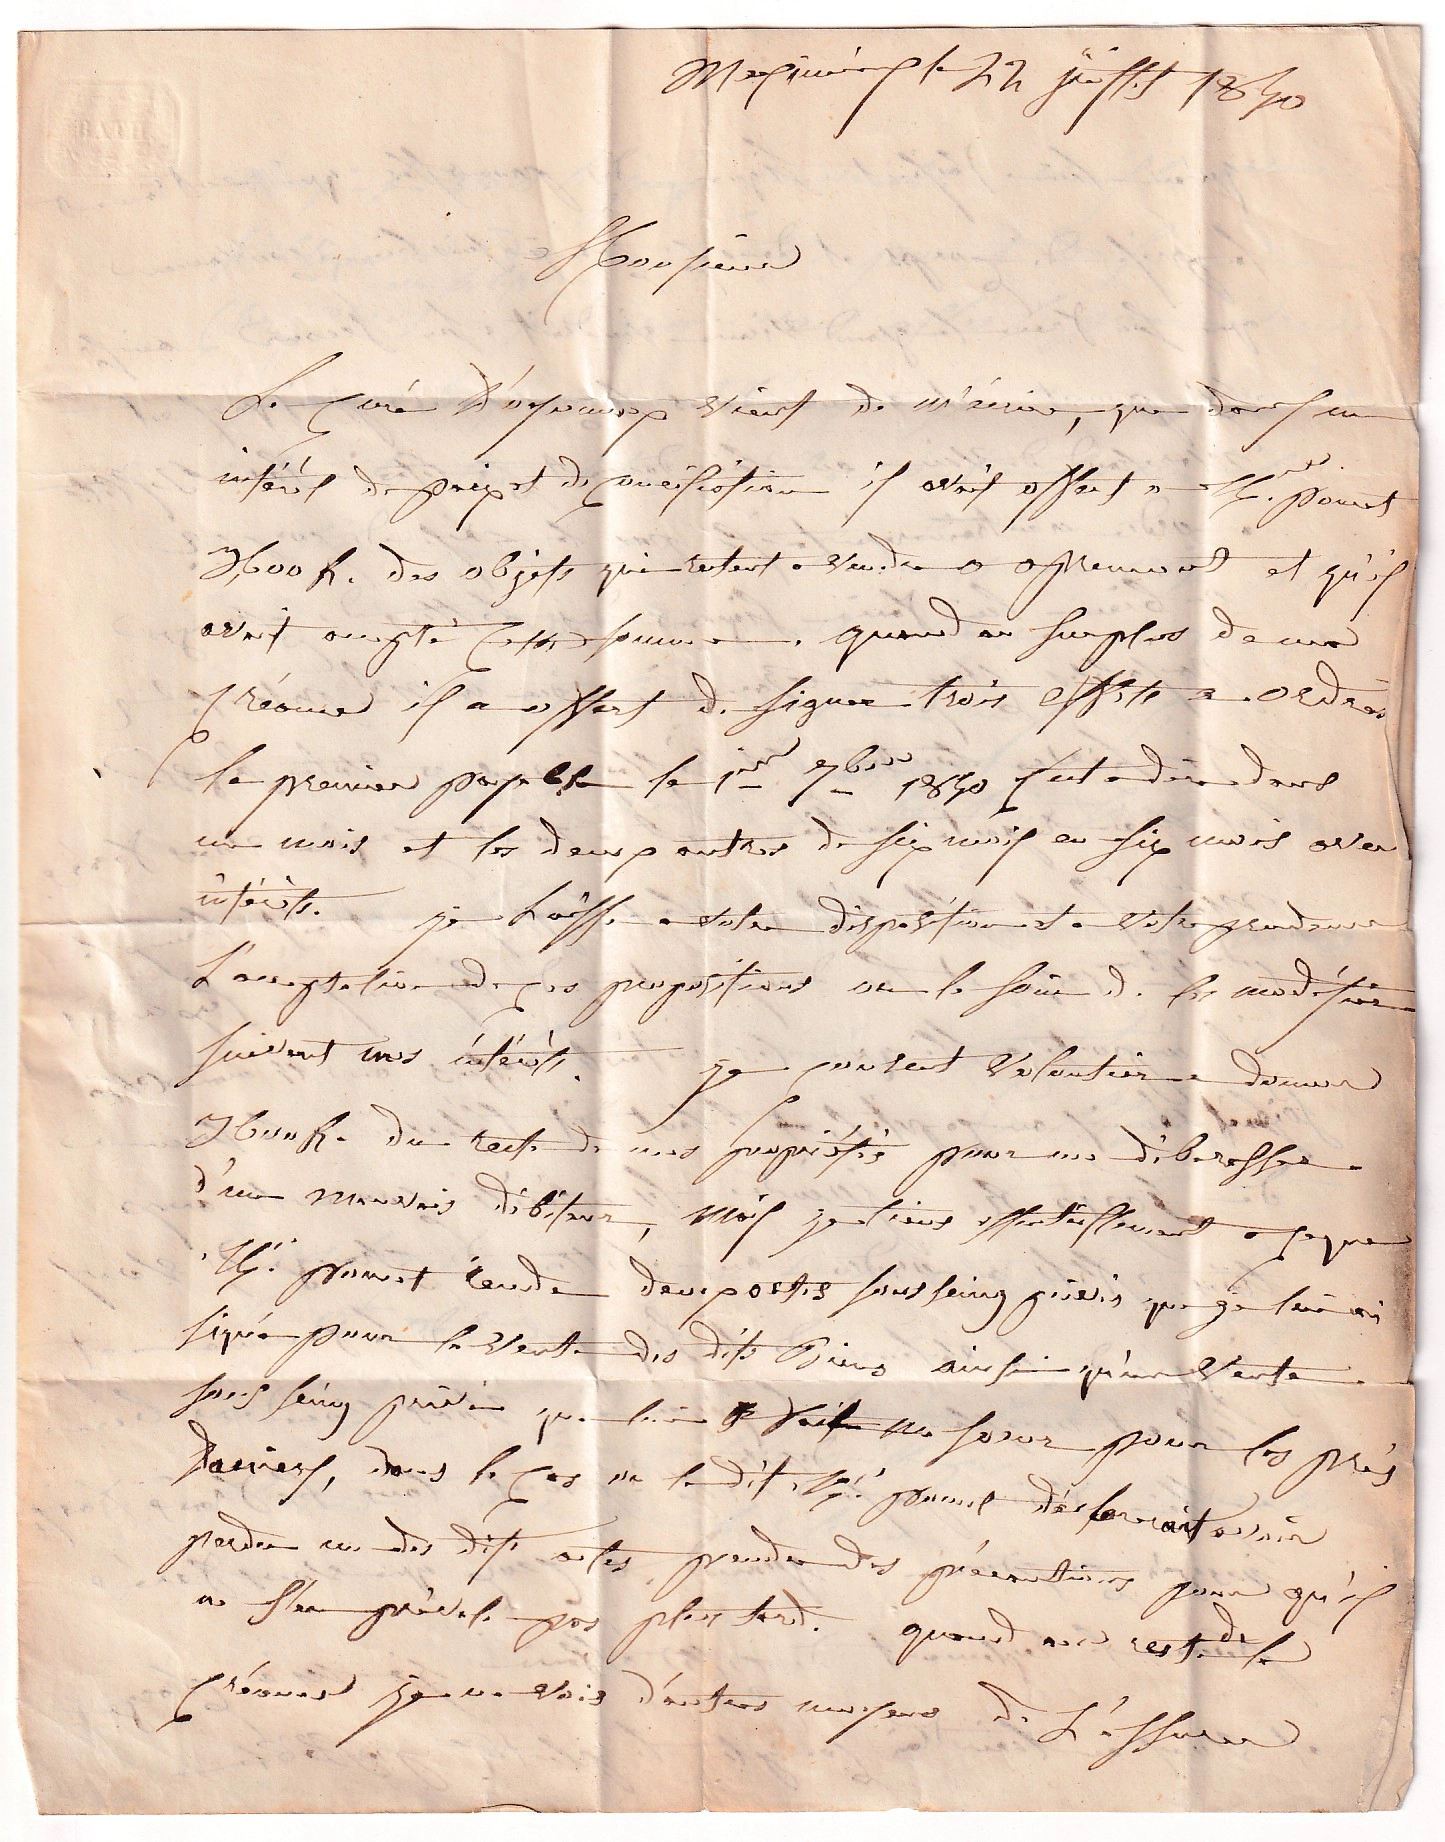 Meximieux le 22 juillet 1850
Monsieur
Le Curé vient de m'écrire, que dans un
intérêt de paix et de conciliation il avait offert a Mr. pomet
des objets qui restent a vendre a et qu'il
avait accepté cette somme. quand au surplus de ma
créance il a offert de signer trois effets a ordres
le premier payable le 1er 7bre 1850 c'est a dire dans
un mois et les deux autres de six mois en six mois avec
intérêts. je laisse a votre disposition et a votre prudence
l'acceptation de ces propositions ou le soin de les modifier
suivant mes intérêts. je consent volontier a donner
du reste de mes propriétés pour me débarasser
d'un mauvais débiteur, mais je tiens essentiellement a ce que
Mr. pomet rende deux actes sous seing privés que je lui ai
signé pour la vente des dits Biens ainsi qu'une vente
sous seing privé que lui fait ma soeur pour les prés
dans le cas ou le dit Mr. pomet déclarerait avoir
perdu un des dits actes prendre des précautions pour qu'il
ne s'en prévale pas plus tard. quand au reste de la
créance je ne vois d'autres moyens de l'assurer